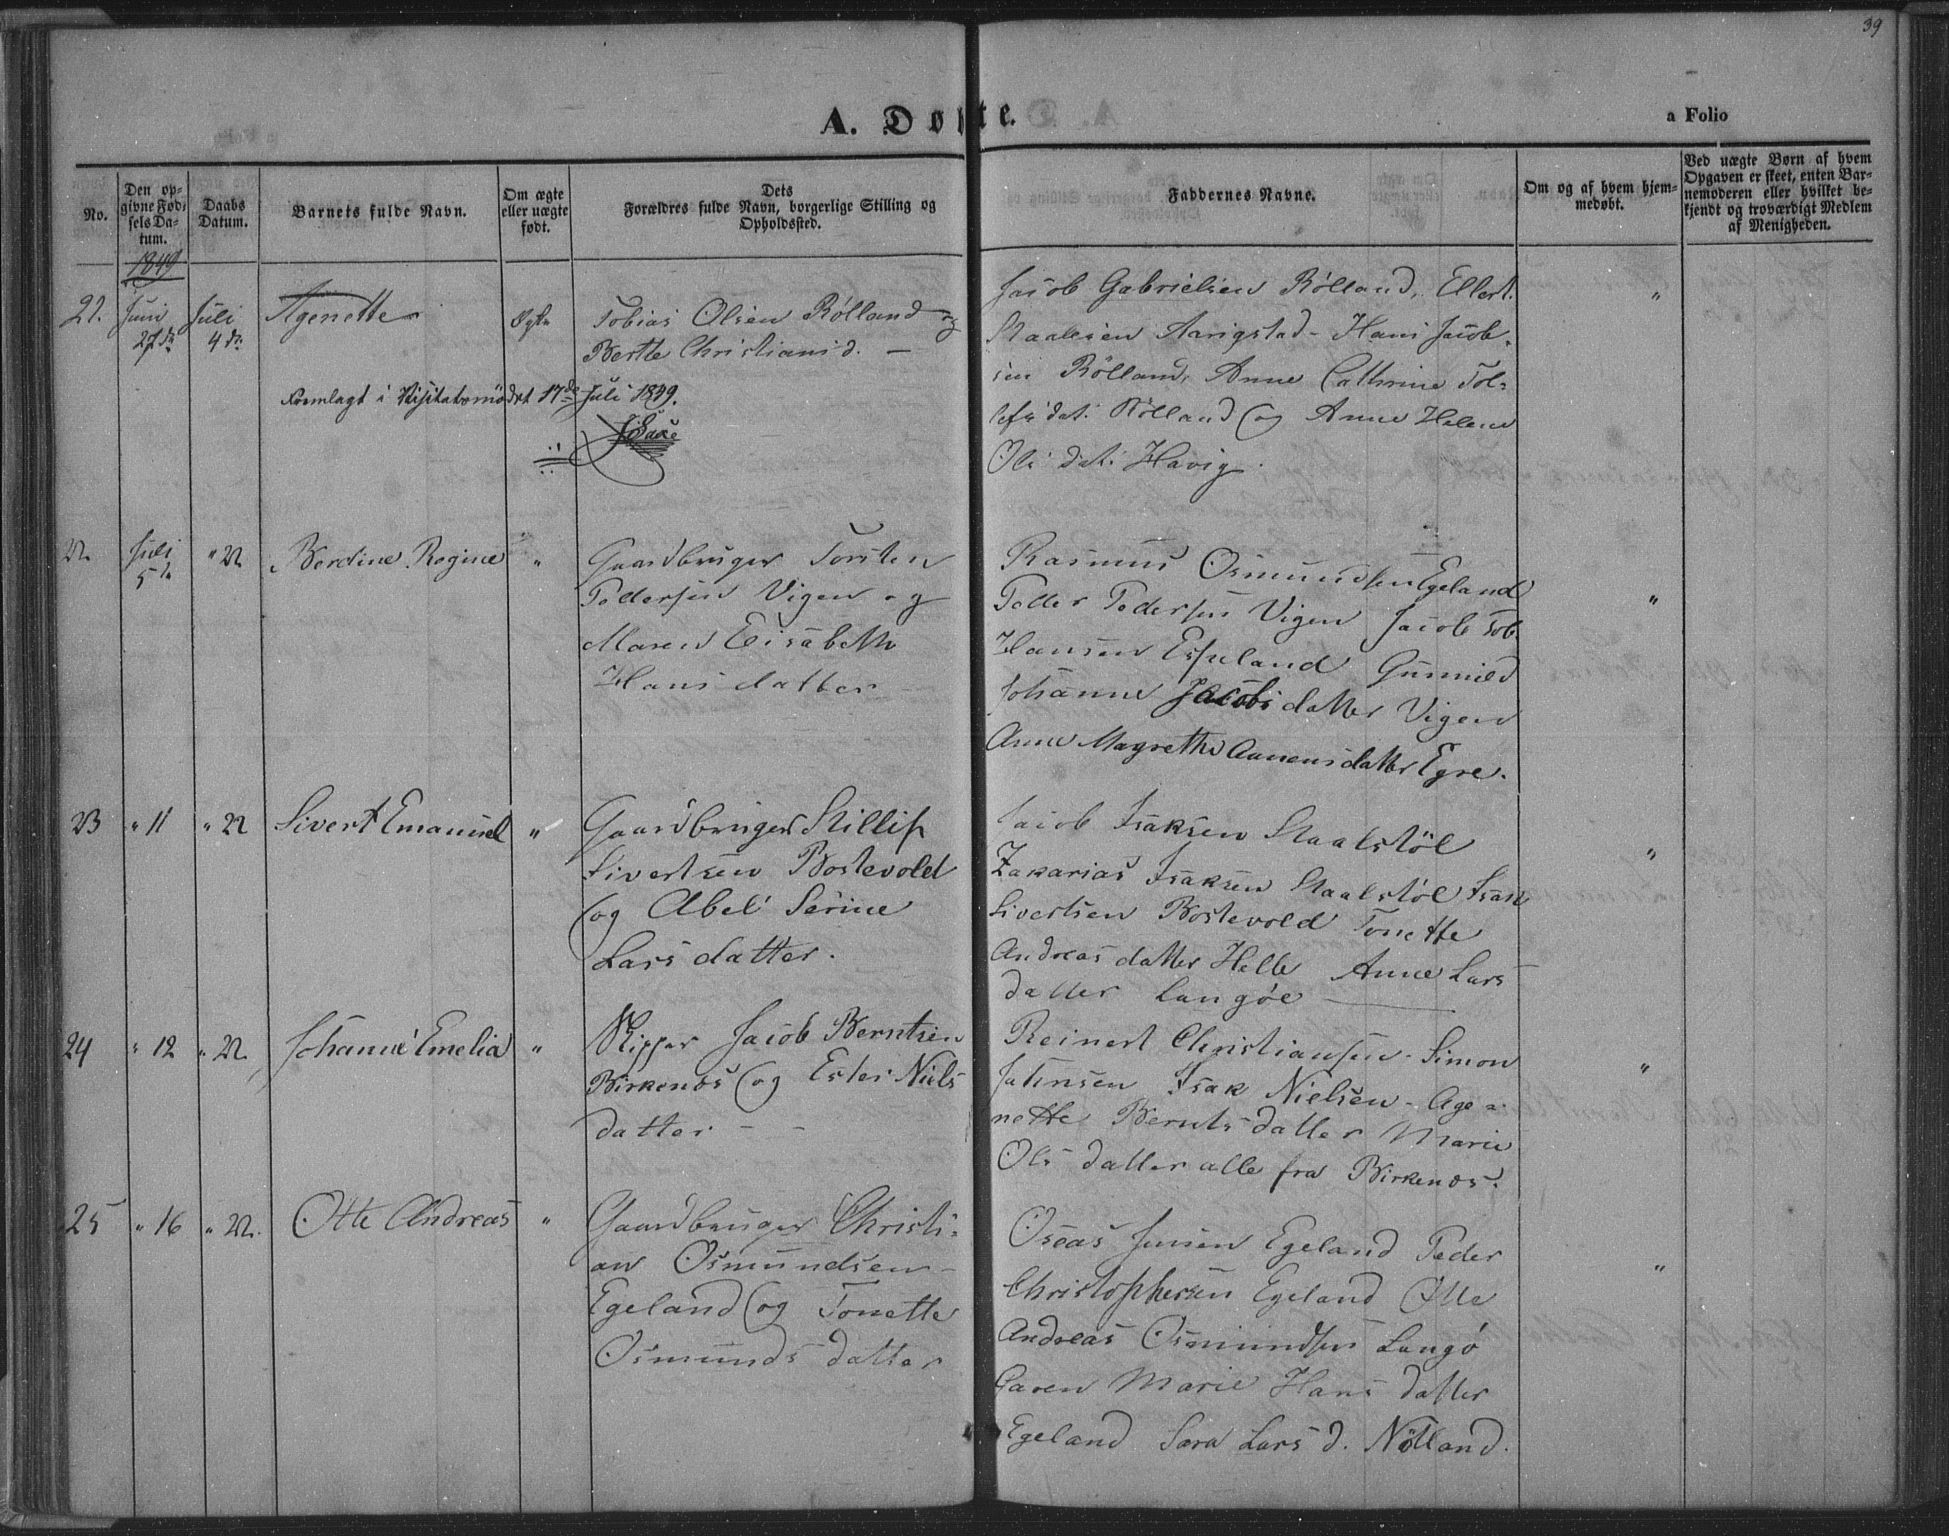 39
A. Døbte.
a Folio
No.
Den op-
givne Fød-
sels Da-
tum.
Daabs
Datum.
Barnets fulde Navn.
Om ægte
eller uægte
født.
Dets
Forældres fulde Navn, borgerlige Stilling og
Opholdssted.
Faddernes Navne.
Om og af hvem hjem-
medøbt.
Ved uægte Børn af hvem
Opgaven er skeet, enten Bar-
nemoderen eller hvilket be-
kjendt og troværdigt Medlem
af Menigheden.
1849
21.
Juni
27de
Juli
4de
Agenette
Ægte
Tobias Olsen Rölland og
Berthe Christiansd. —
Fremlagt i Visitatsmödet 17de Juli 1849.
Jacob Gabrielsen Rölland, Ellert
Staalesen Aarigstad - Hans Jacob-
sen Rölland, Anne Cathrine Tol-
lefsdat. Rölland og Anne Helene
Ols dat. Havig.
"
22
Juli
5te
" 22
Berdine Regine
"
Gaardbruger Torsten
Pedersen Vigen og
Maren Elisabeth
Hansdatter
Rasmus Osmundsen Egeland
Peder Pedersen Vigen Jacob Tob.
Hansen Espeland Gunnild
Johanne Jacobsdatter Vigen
Anne Magrethe Aanensdatter Egre.
"
23
" 11
" 22
Sivert Emanuel
"
Gaardbruger Phillip
Sivertsen Bostevold
og Abel Serine
Lars datter.
Jacob Isaksen Staalstöl
Zakarias Isaksen Staalstöl Isak
Sivertsen Bostevold Tonette
Andreas datter Helle Anne Lars
datter Langöe —
"
24
" 12
" 22
Johanne Emelia
"
Skipper Jacob Berntsen
Birkenæs og Ester Niels
datter - -
Reinert Christiansen - Simon
Jahnsen Isak Nielsen - Age-
nette Bernts datter Marie
Ols datter alle fra Birkenæs.
"
25
" 16
" 22.
Otte Andreas
"
Gaardbruger Christi-
an Osmundsen
Egeland og Tonette
Osmunds datter
Oseas Jensen Egeland Peder
Christophersen Egeland Otte
Andreas Osmundsen Langö
Caren Marie Hans datter
Egeland Sara Lars d. Nölland.
"